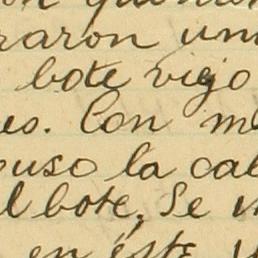 raron un
bote viejo
es. Con m
puso la ca
l bote; Se
en éste